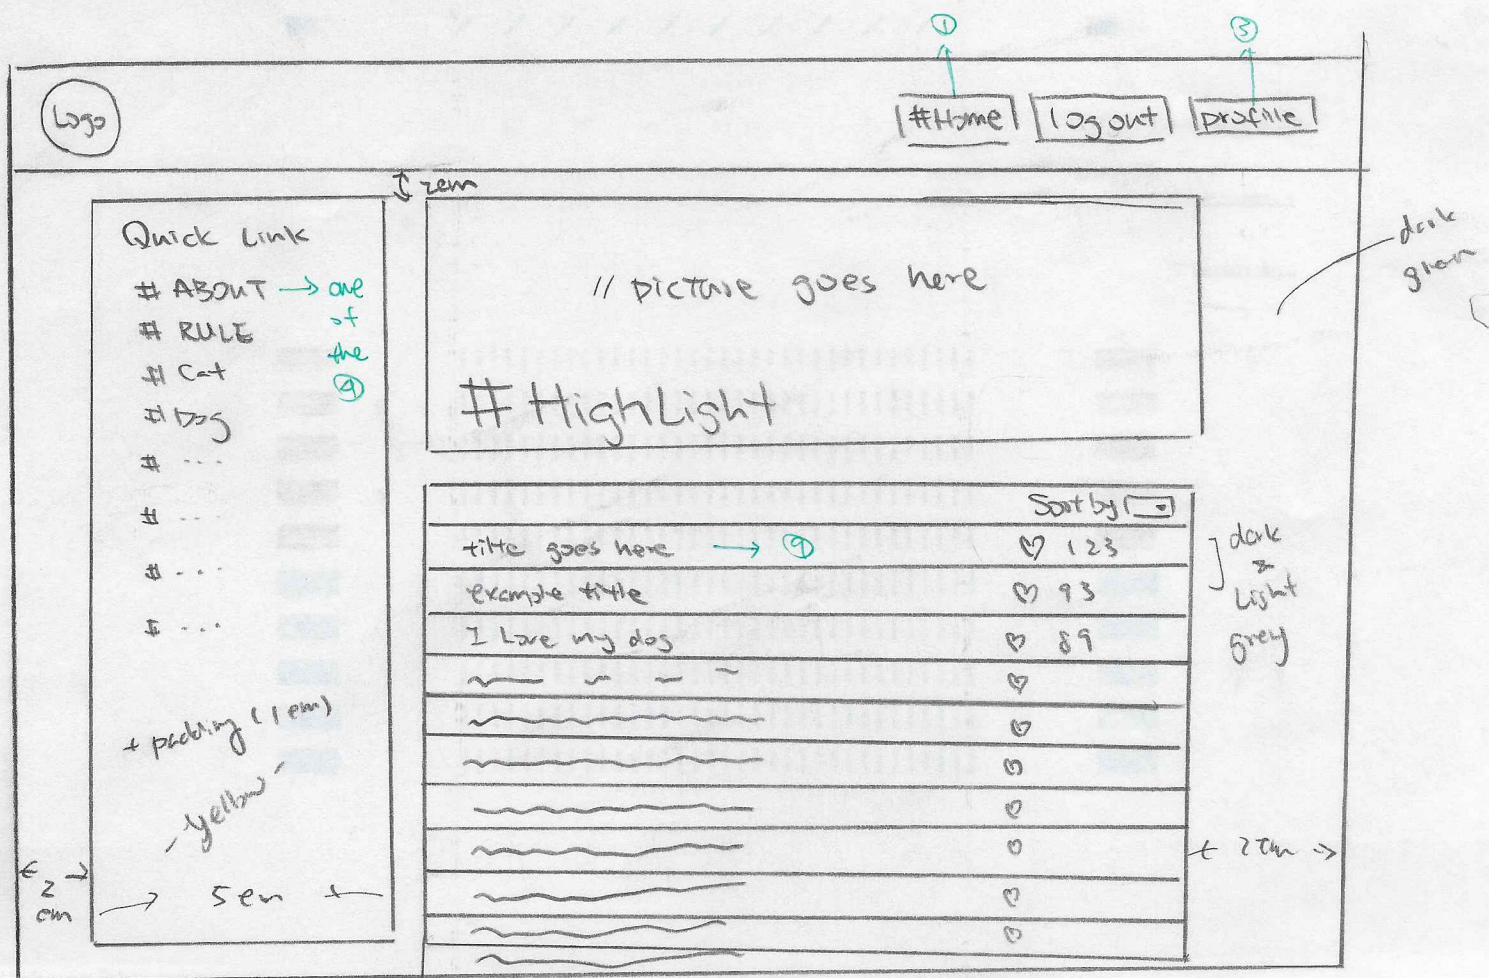 ①
③
Logo
#Home
logout
profile
2em
Quick Link
# ABOUT → one
of
the
④
# RULE
# Cat
# Dog
# ...
# ...
# ...
# ...
+ padding (1em)
- yellow -
← 2 →
em
→ 5em ←
// picture goes here
# HighLight
dark
green
Sort by
title goes here → ④
♡ 123
example title
♡ 93
I Love my dog
♡ 89
♡
♡
♡
♡
♡
♡
♡
dark
&
Light
grey
← 2em →